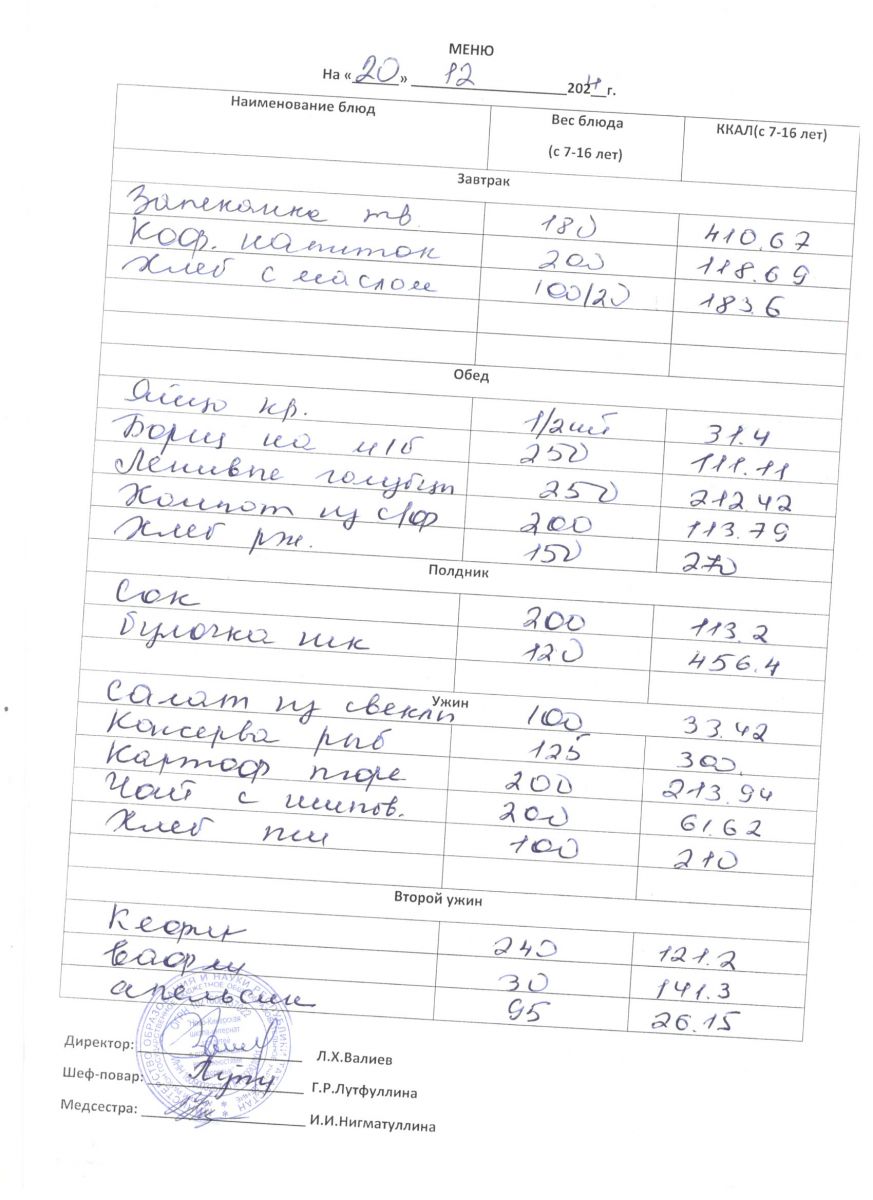 МЕНЮ
На «20» 12 2024 г.
Наименование блюд Вес блюда (с 7-16 лет) ККАЛ(с 7-16 лет)
Завтрак
Запеканка тв. 180 410.67
Коф. напиток 200 118.69
Хлеб с маслом 100/20 183.6
Обед
Яйцо кр. 1/2шт 31.4
Борщ на м/б 250 111.11
Ленивые голубцы 250 212.42
Компот из с/ф 200 113.79
Хлеб рж. 150 270
Полдник
Сок 200 113.2
Булочка шк 120 456.4
Ужин
Салат из свеклы 100 33.42
Консерва рыб 125 300.
Картоф пюре 200 213.94
Чай с шипов. 200 61.62
Хлеб пш 100 210
Второй ужин
Кефир 240 121.2
Вафли 30 141.3
апельсин 95 26.15
Директор: Л.Х.Валиев
Шеф-повар: Г.Р.Лутфуллина
Медсестра: И.И.Нигматуллина